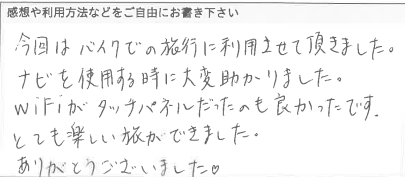 感想や利用方法などをご自由にお書き下さい
今回はバイクでの旅行に利用させて頂きました。
ナビを使用する時に大変助かりました。
wiFiがタッチパネルだったのも良かったです.
とても楽しい旅ができました。
ありがとうございました♡